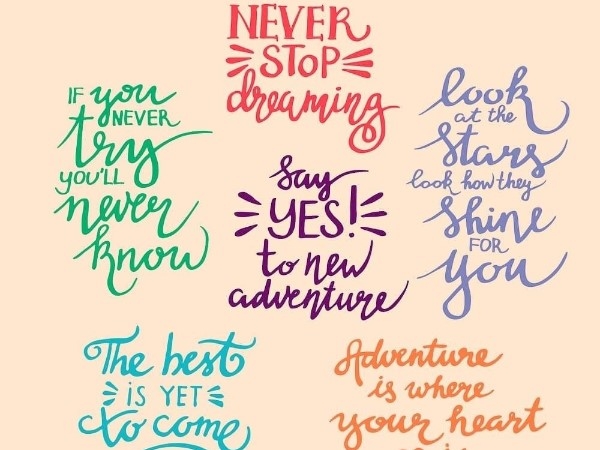 NEVER
STOP
dreaming
IF you
NEVER
try
YOU'LL
never
know
look
at the
stars
look how they
shine
FOR
you
say
YES!
to new
adventure
The best
is YET
to come
Adventure
is where
your heart